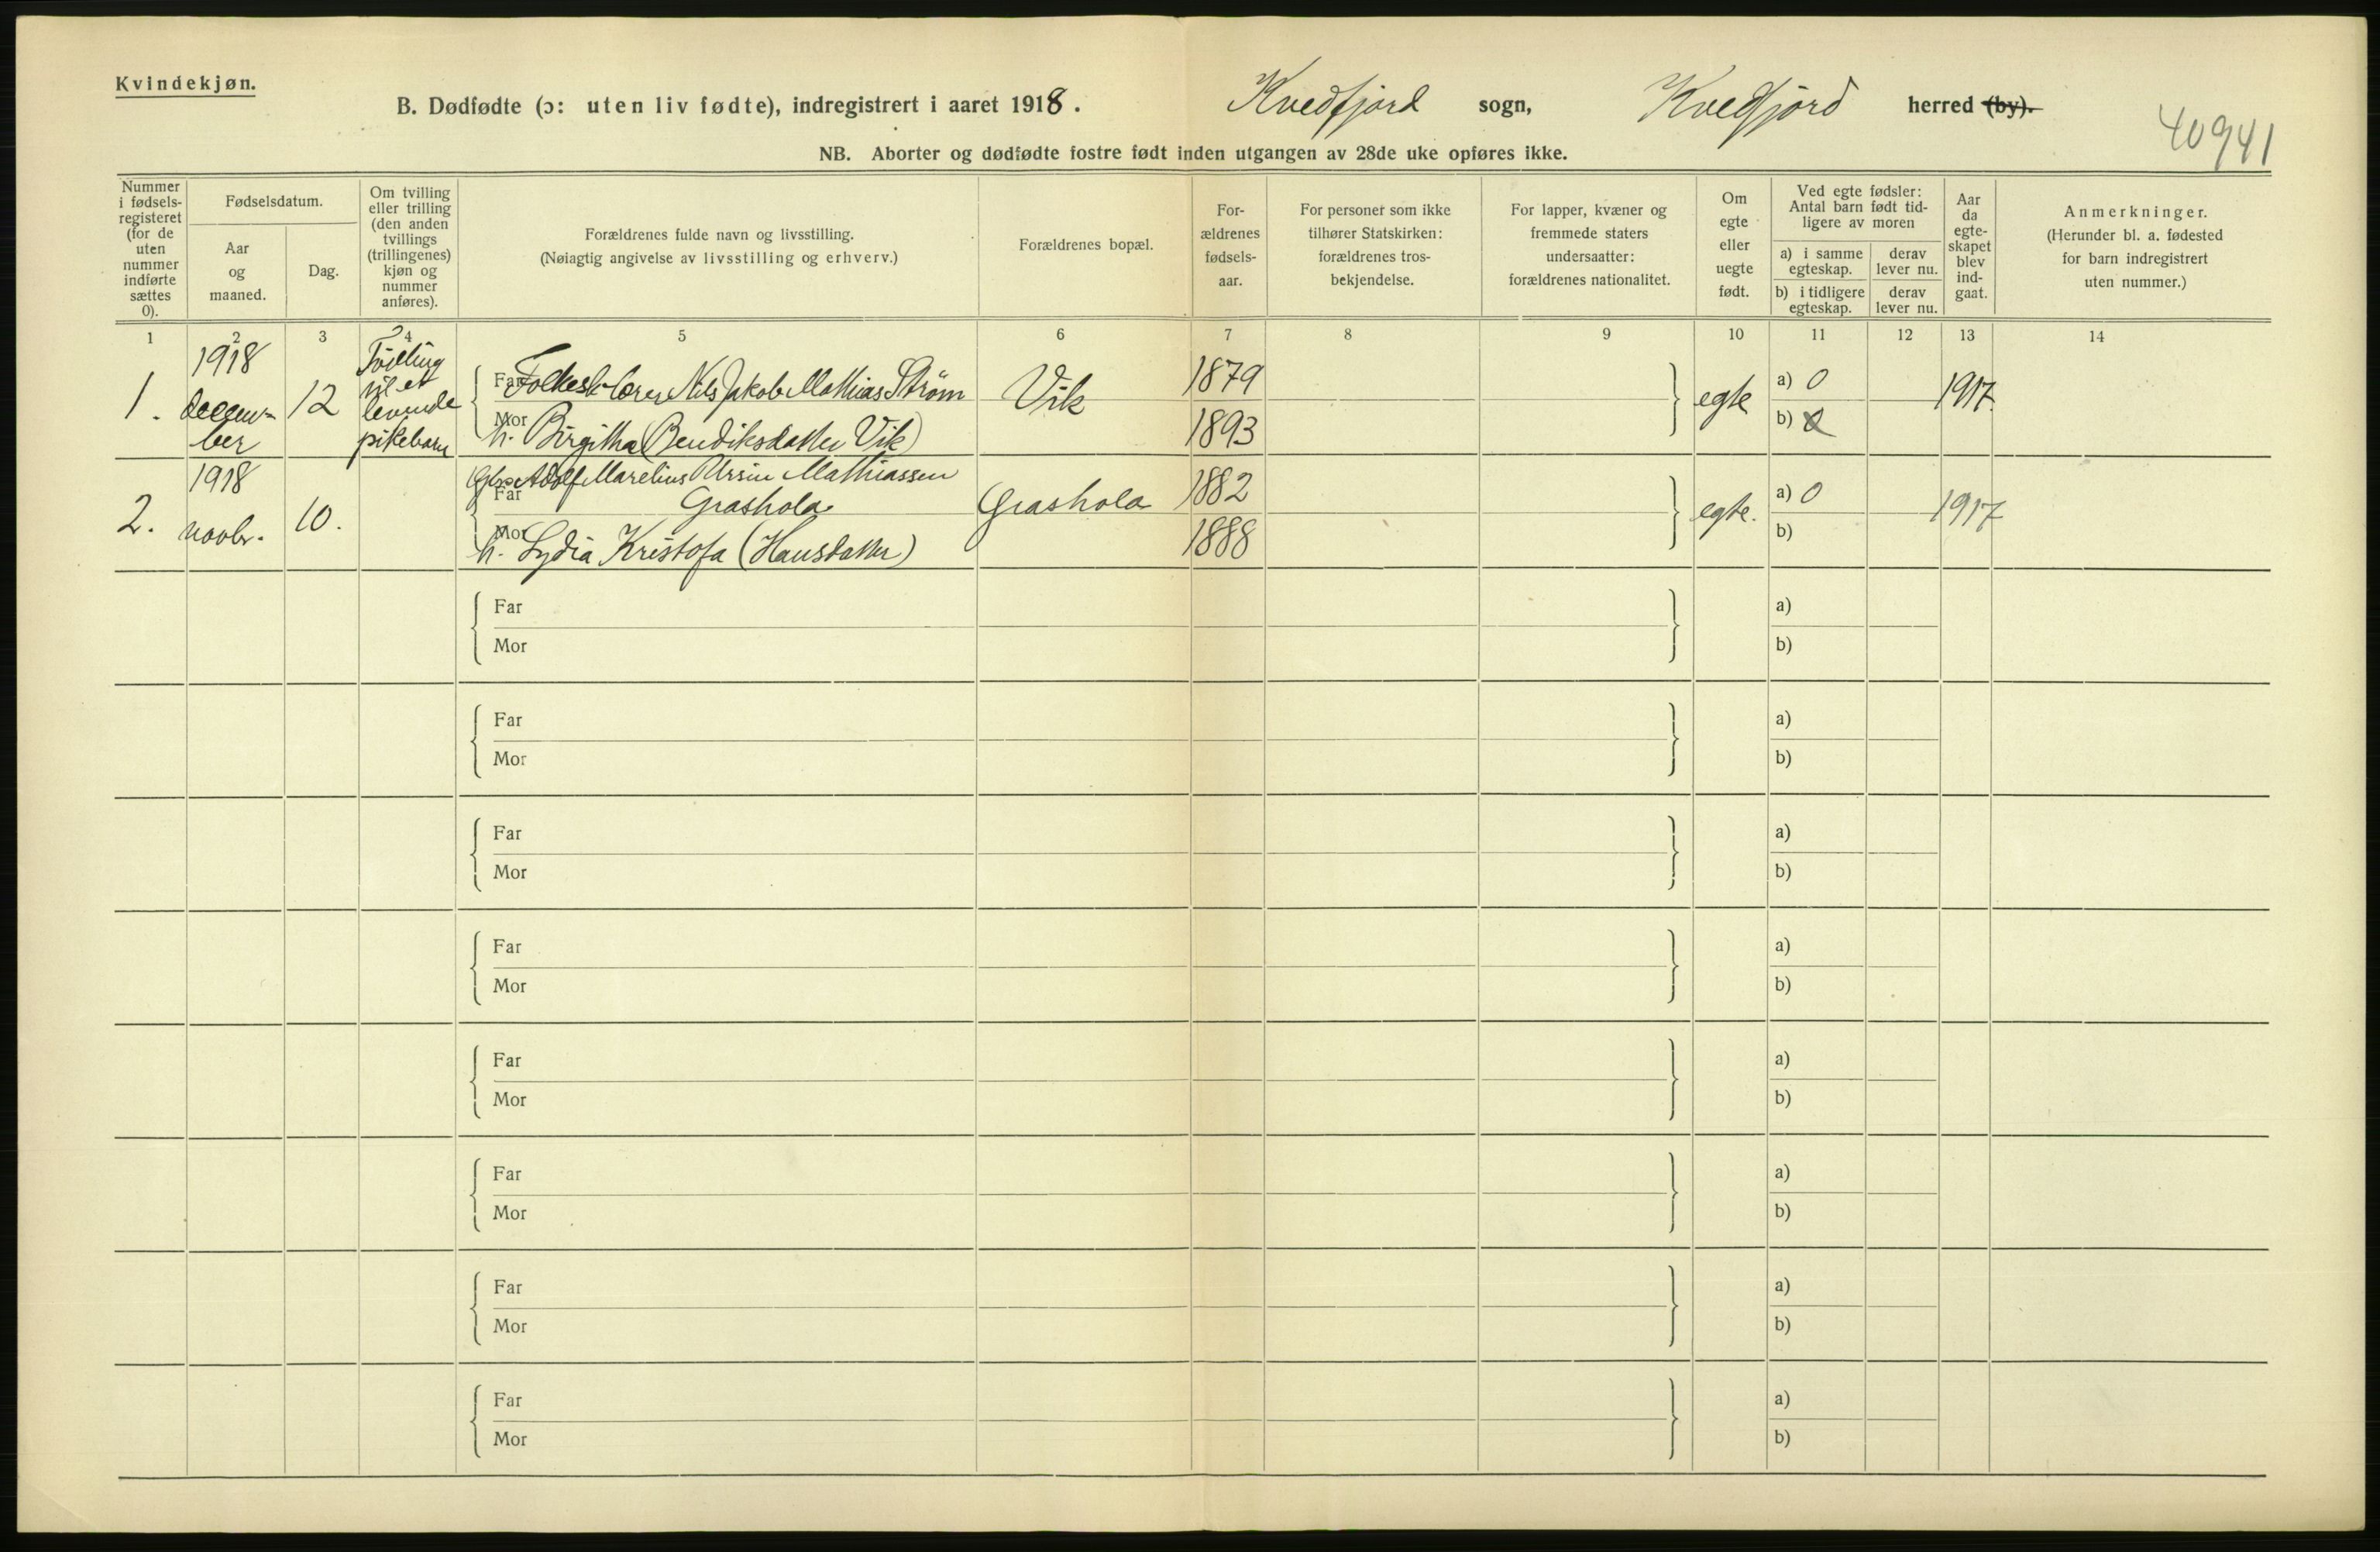 Kvindekjøn.
B. Dødfødte (ɔ: uten liv fødte), indregistrert i aaret 1918. Kvedfjord sogn, Kvedfjord herred (by).
40941
NB. Aborter og dødfødte fostre født inden utgangen av 28de uke opføres ikke.
Nummer i fødsels-registeret (for de uten nummer indførte sættes 0).
Fødselsdatum.
Aar og maaned.
Dag.
Om tvilling eller trilling (den anden tvillings (trillingenes) kjøn og nummer anføres).
Forældrenes fulde navn og livsstilling.
(Nøiagtig angivelse av livsstilling og erhverv.)
Forældrenes bopæl.
For-ældrenes fødsels-aar.
For personer som ikke tilhører Statskirken: forældrenes tros-bekjendelse.
For lapper, kvæner og fremmede staters undersaatter: forældrenes nationalitet.
Om egte eller uegte født.
Ved egte fødsler: Antal barn født tid-ligere av moren
a) i samme egteskap.
derav lever nu.
b) i tidligere egteskap.
derav lever nu.
Aar da egte-skapet blev ind-gaat.
Anmerkninger.
(Herunder bl. a. fødested for barn indregistrert uten nummer.)
1 2 3 4 5 6 7 8 9 10 11 12 13 14
1. 1918 decem-ber 12 Tvilling til et levende pikebarn
Far Folkeskolærer Nils Jakob Mathias Strøm Vik 1879 egte a) 0 1917
Mor h. Birgitha (Bendiksdatter Vik) 1893 b) 0
2. 1918 novbr. 10.
Far Adolf Marelius Ursin Mathiassen
Grashola Grashola 1882 egte. a) 0 1917
Mor h. Lydia Kristofa (Hansdatter) 1888 b)
Far a)
Mor b)
Far a)
Mor b)
Far a)
Mor b)
Far a)
Mor b)
Far a)
Mor b)
Far a)
Mor b)
Far a)
Mor b)
Far a)
Mor b)